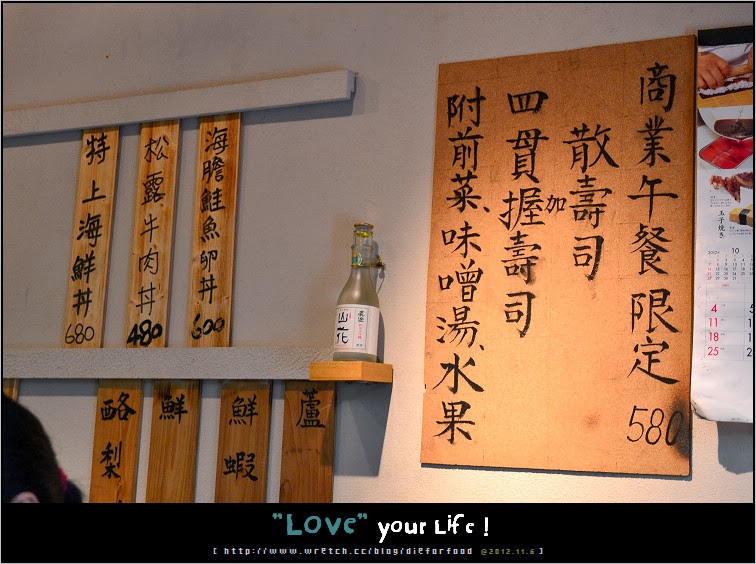 商業午餐限定 580
散壽司
加
四貫握壽司
附前菜、味噌湯、水果
海膽鮭魚卵丼 600
松露牛肉丼 480
特上海鮮丼 680
蘆
鮮蝦
鮮
酪梨
山花
玉子焼き
10
4
11
18
25
"Love" your Life !
[ http://www.wretch.cc/blog/dieforfood @2012.11.6 ]